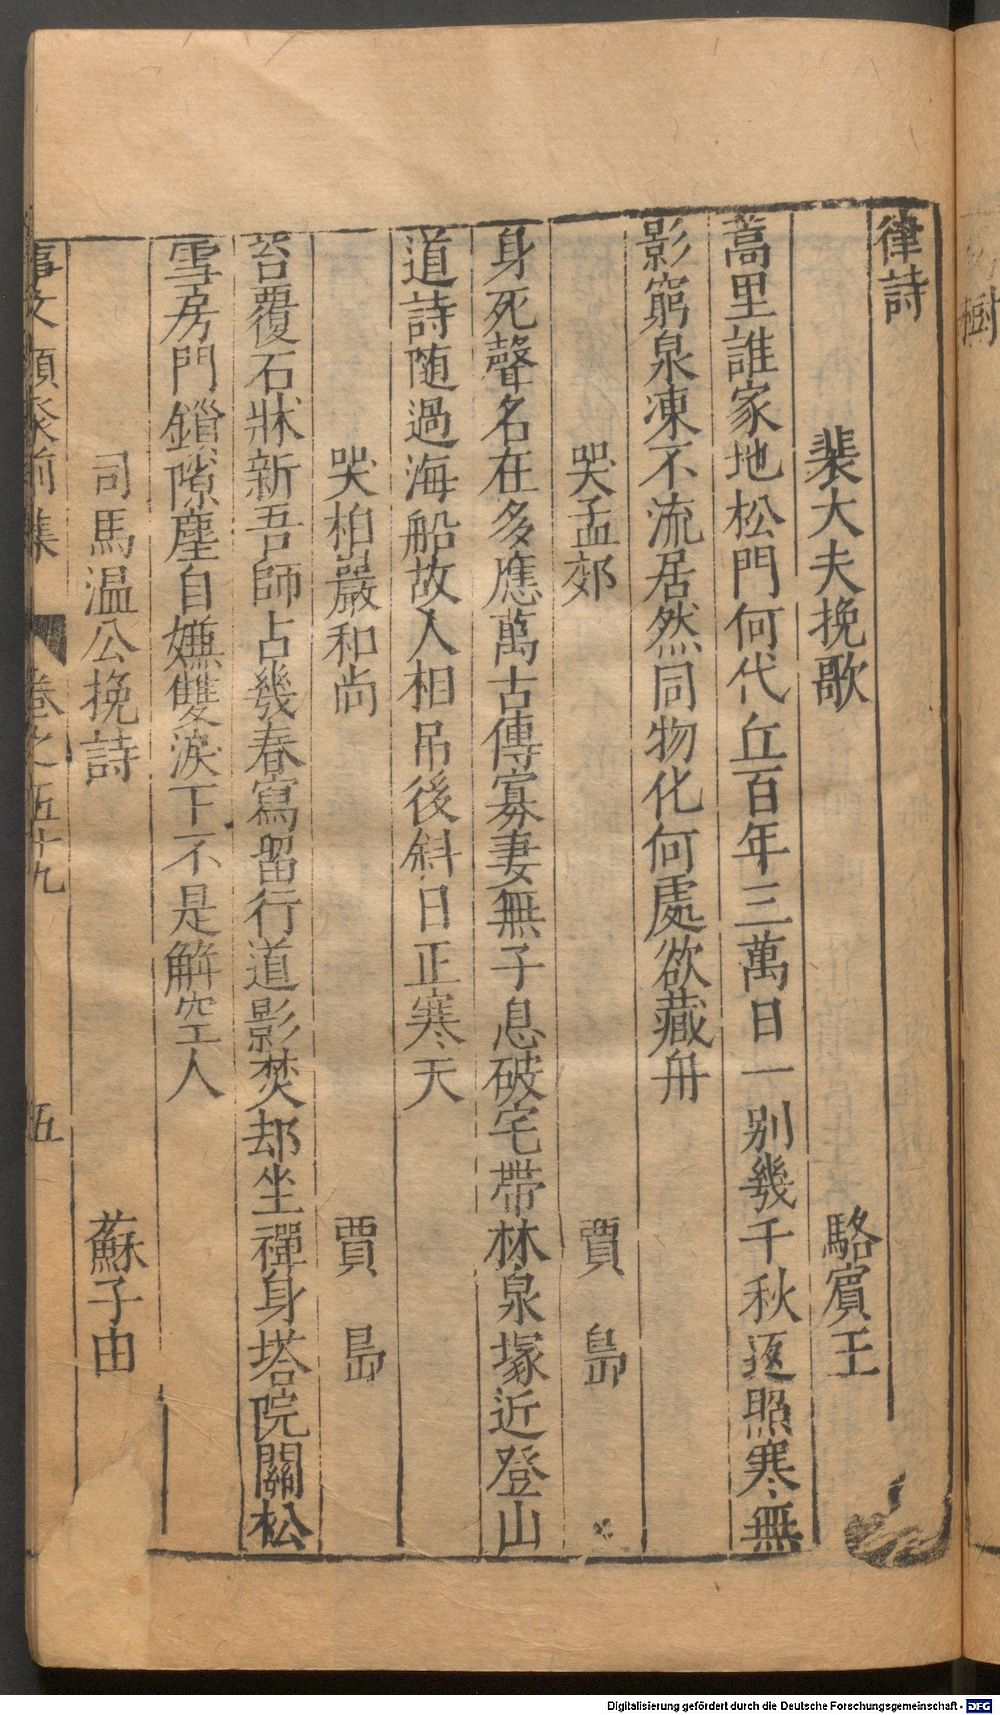 律詩
裴大夫挽歌　駱賓王
蒿里誰家地松門何代丘百年三萬日一別幾千秋返照寒無
影窮泉凍不流居然同物化何處欲藏舟
哭孟郊　賈島
身死聲名在多應萬古傳寡妻無子息破宅帶林泉塚近登山
道詩随過海船故人相吊後斜日正寒天
哭栢巖和尚　賈島
苔覆石牀新吾師占幾春寫畱行道影焚却坐禪身塔院關松
雪房門鎻隙塵自嫌雙淚下不是解空人
司馬温公挽詩　蘇子由
事文類聚前集　卷之五十九　五
樹
Digitalisierung gefördert durch die Deutsche Forschungsgemeinschaft - DFG